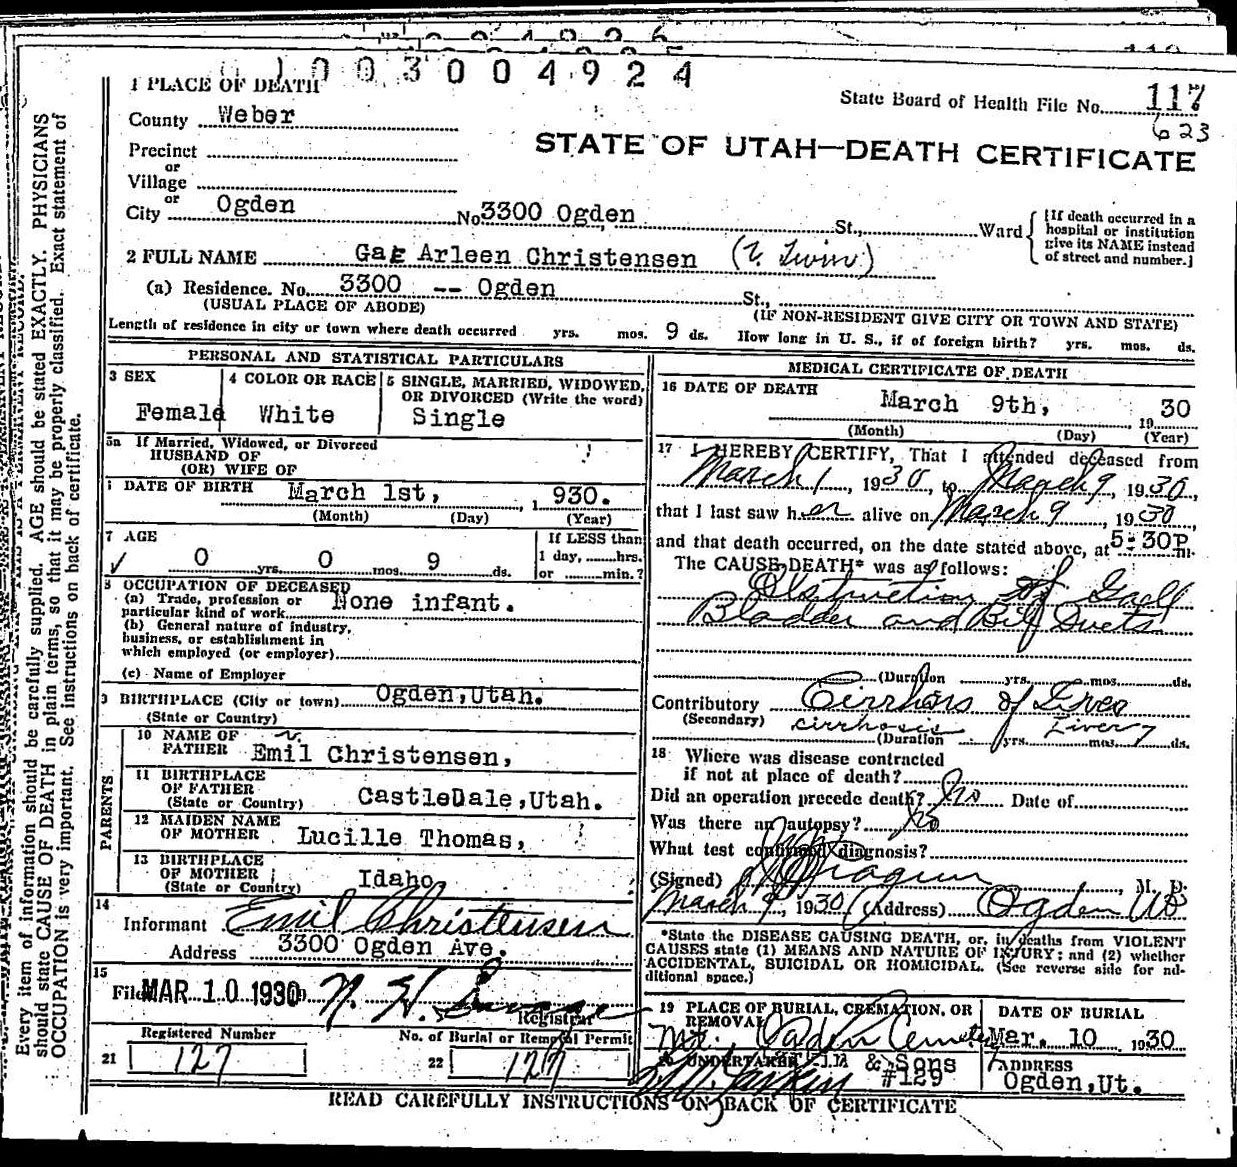 1003004924
1 PLACE OF DEATH
State Board of Health File No. 117
623
County Weber
STATE OF UTAH—DEATH CERTIFICATE
Precinct
or
Village
or
City Ogden No 3300 Ogden St., Ward
[If death occurred in a
hospital or institution
give its NAME instead
of street and number.]
2 FULL NAME Gae Arleen Christensen
(a) Residence. No. 3300 -- Ogden St.,
(USUAL PLACE OF ABODE) (IF NON-RESIDENT GIVE CITY OR TOWN AND STATE)
Length of residence in city or town where death occurred yrs. mos. 9 ds. How long in U. S., if of foreign birth? yrs. mos. ds.
PERSONAL AND STATISTICAL PARTICULARS
3 SEX 4 COLOR OR RACE 5 SINGLE, MARRIED, WIDOWED,
OR DIVORCED (Write the word)
Female White Single
5a If Married, Widowed, or Divorced
HUSBAND OF
(OR) WIFE OF
DATE OF BIRTH March 1st, 1930.
(Month) (Day) (Year)
7 AGE If LESS than
0 yrs. 0 mos. 9 ds. 1 day, hrs.
or min.?
8 OCCUPATION OF DECEASED
(a) Trade, profession or
particular kind of work None infant.
(b) General nature of industry,
business, or establishment in
which employed (or employer)
(c) Name of Employer
9 BIRTHPLACE (City or town) Ogden,Utah.
(State or Country)
PARENTS
10 NAME OF
FATHER Emil Christensen,
11 BIRTHPLACE
OF FATHER
(State or Country) CastleDale,Utah.
12 MAIDEN NAME
OF MOTHER Lucille Thomas,
13 BIRTHPLACE
OF MOTHER
(State or Country) Idaho
14
Informant Emil Christensen
Address 3300 Ogden Ave.
15
Filed MAR 10 1930 N. H.
Registrar
Registered Number No. of Burial or Removal Permit
21 127 22 127
MEDICAL CERTIFICATE OF DEATH
16 DATE OF DEATH March 9th, 1930
(Month) (Day) (Year)
17 I HEREBY CERTIFY, That I attended deceased from
March 1, 1930, to March 9, 1930,
that I last saw her alive on March 9, 1930
and that death occurred, on the date stated above, at 5:30P m.
The CAUSE OF DEATH* was as follows:
Obstruction of Gall
Bladder and Bile Ducts
(Duration yrs. mos. ds.
Contributory Cirrhosis of Liver
(Secondary) cirrhosis Liver
(Duration yrs. mos. ds.
18 Where was disease contracted
if not at place of death?
Did an operation precede death? No Date of
Was there an autopsy? No
What test confirmed diagnosis?
(Signed) M. D.
March 9, 1930 (Address) Ogden Ut
*State the DISEASE CAUSING DEATH, or, in deaths from VIOLENT
CAUSES state (1) MEANS AND NATURE OF INJURY; and (2) whether
ACCIDENTAL, SUICIDAL OR HOMICIDAL. (See reverse side for additional space.)
19 PLACE OF BURIAL, CREMATION, OR
REMOVAL
DATE OF BURIAL
Mt. Ogden Cemetery Mar. 10 1930
20 UNDERTAKER & Sons
#129
ADDRESS
Ogden,Ut.
READ CAREFULLY INSTRUCTIONS ON BACK OF CERTIFICATE
Every item of information should be carefully supplied. AGE should be stated EXACTLY. PHYSICIANS
should state CAUSE OF DEATH in plain terms, so that it may be properly classified. Exact statement of
OCCUPATION is very important. See instructions on back of certificate.